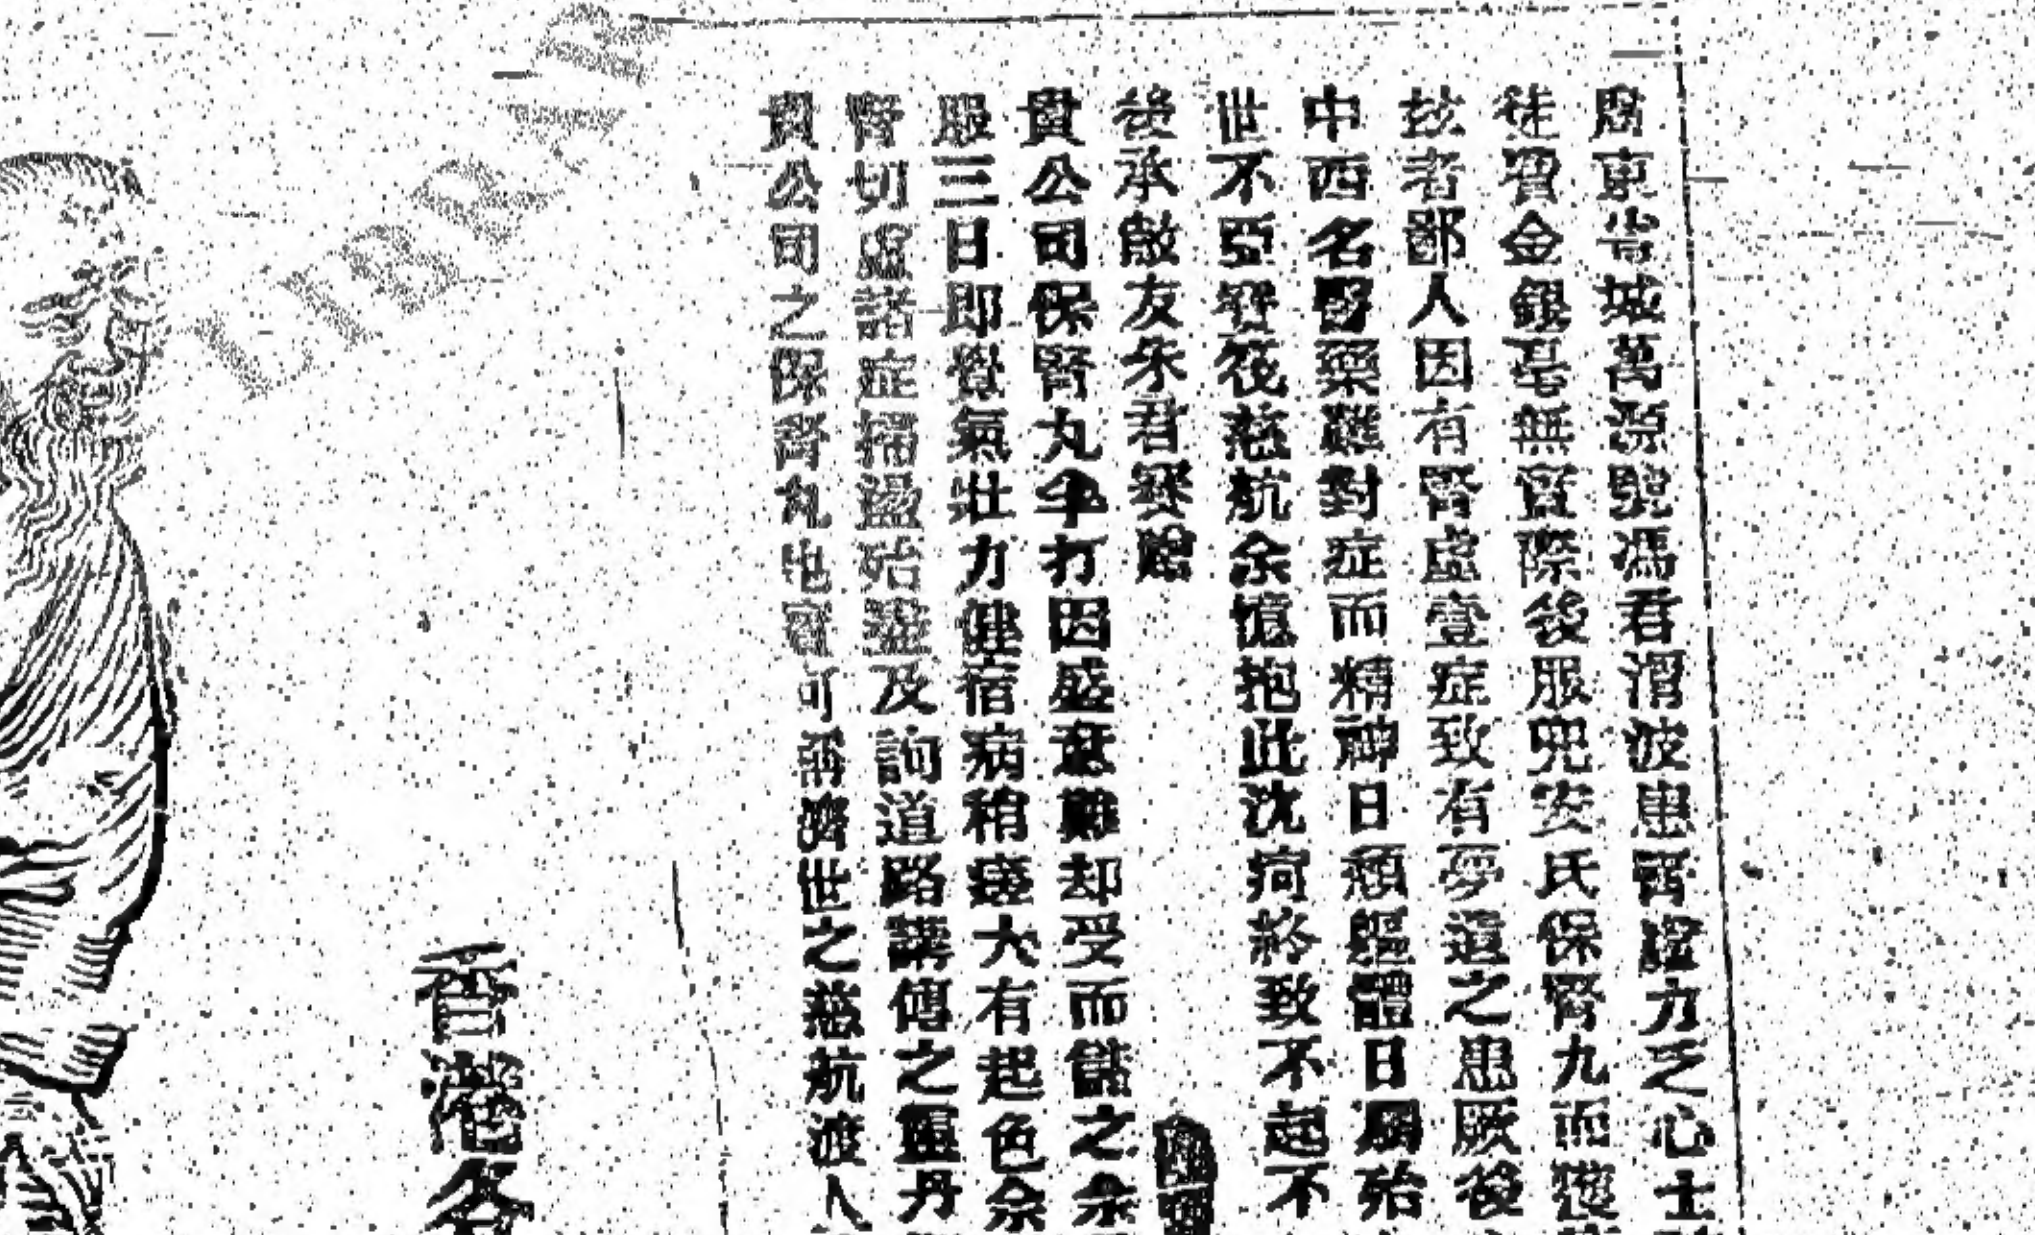 東省城萬源號馮君渭波患腎證力乏心士
徒費金銀毫無實際後服兜安氏保腎九而獲
者鄙人因有腎虛壹症致有夢遺之患厥後
中西名醫藥難對症而精神日頽軀體日羸殆
世不亞寶筏慈航余憶抱此沈疴終致不起不
後承啟友朱君賽贈
貴公司保腎丸半打因盛意難却受而儲之余
服三日即覺氣壯力健宿病稍痊大有起色余
腎切處諸症掃盪殆盡及詢道路講傳之靈丹
貴公司之保腎丸也實可稱濟世之慈航渡人
香港各